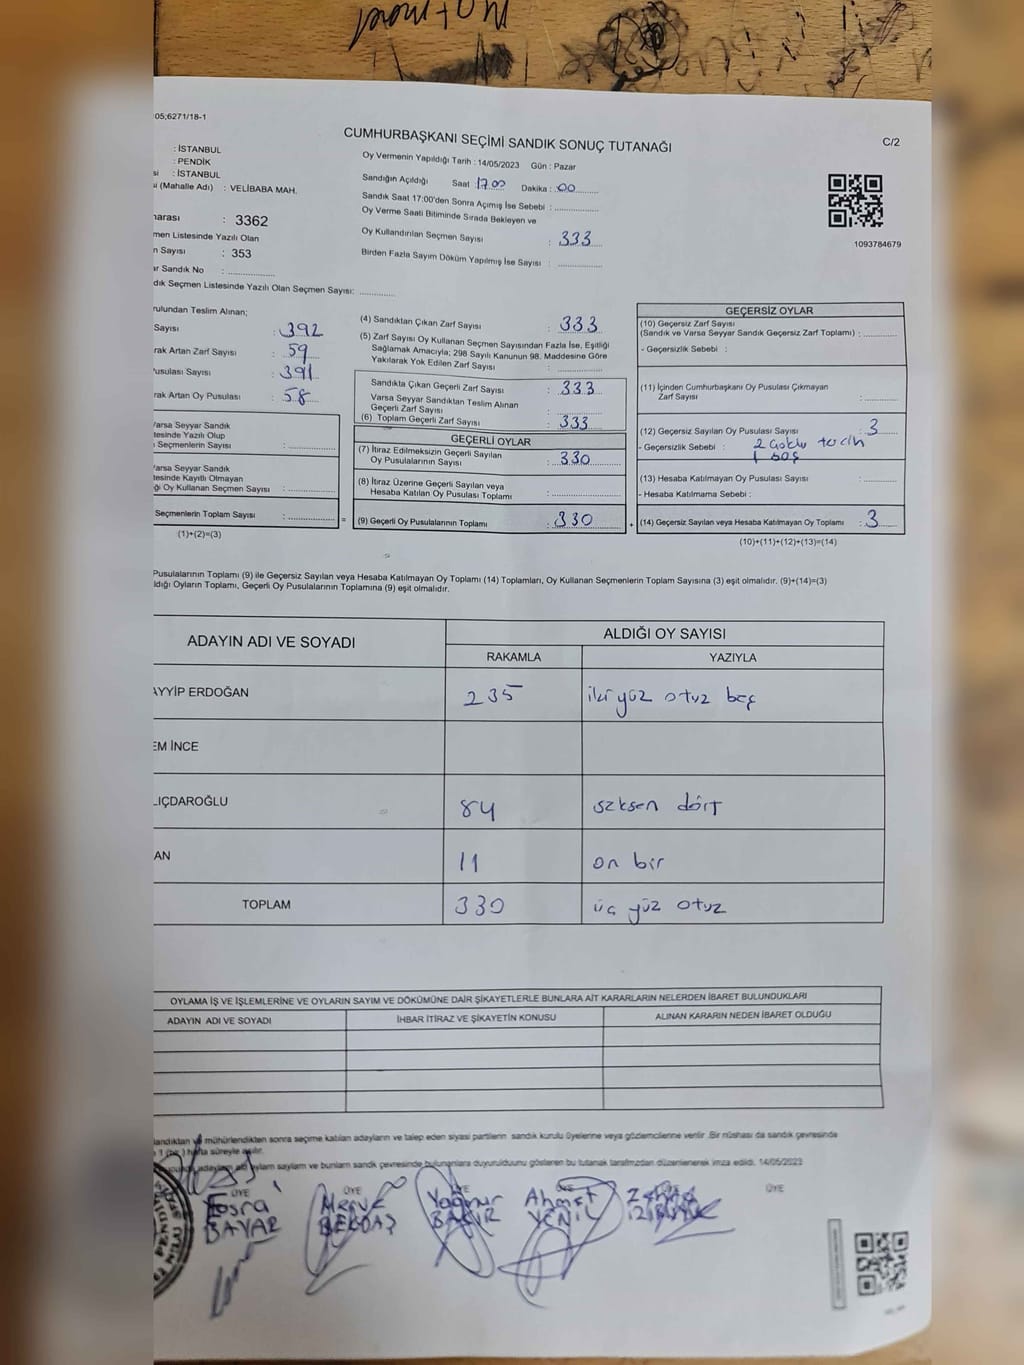 05;6271/18-1
CUMHURBAŞKANI SEÇİMİ SANDIK SONUÇ TUTANAĞI
C/2
: İSTANBUL
: PENDİK
: İSTANBUL
(Mahalle Adı) : VELİBABA MAH.
Oy Vermenin Yapıldığı Tarih : 14/05/2023 Gün : Pazar
Sandığın Açıldığı Saat : 17.00 Dakika : 00
Sandık Saat 17:00'den Sonra Açımış İse Sebebi :
Oy Verme Saati Bitiminde Sırada Bekleyen ve
Oy Kullandırılan Seçmen Sayısı : 333
Birden Fazla Sayım Döküm Yapılmış İse Sayısı :
1093784679
: 3362
men Listesinde Yazılı Olan
Sayısı : 353
ar Sandık No :
dık Seçmen Listesinde Yazılı Olan Seçmen Sayısı:
rulundan Teslim Alınan;
Sayısı : 392
rak Artan Zarf Sayısı : 59
usulası Sayısı : 391
rak Artan Oy Pusulası : 58
Varsa Seyyar Sandık
tesinde Yazılı Olup
Seçmenlerin Sayısı :
Varsa Seyyar Sandık
tesinde Kayıtlı Olmayan
Oy Kullanan Seçmen Sayısı :
Seçmenlerin Toplam Sayısı :
(1)+(2)=(3)
(4) Sandıktan Çıkan Zarf Sayısı : 333
(5) Zarf Sayısı Oy Kullanan Seçmen Sayısından Fazla İse, Eşitliği
Sağlamak Amacıyla; 298 Sayılı Kanunun 98. Maddesine Göre
Yakılarak Yok Edilen Zarf Sayısı :
Sandıkta Çıkan Geçerli Zarf Sayısı : 333
Varsa Seyyar Sandıktan Teslim Alınan
Geçerli Zarf Sayısı :
(6) Toplam Geçerli Zarf Sayısı : 333
GEÇERLİ OYLAR
(7) İtiraz Edilmeksizin Geçerli Sayılan
Oy Pusulalarının Sayısı : 330
(8) İtiraz Üzerine Geçerli Sayılan veya
Hesaba Katılan Oy Pusulası Toplamı :
= (9) Geçerli Oy Pusulalarının Toplamı : 330 +
GEÇERSİZ OYLAR
(10) Geçersiz Zarf Sayısı
(Sandık ve Varsa Seyyar Sandık Geçersiz Zarf Toplamı) :
- Geçersizlik Sebebi :
(11) İçinden Cumhurbaşkanı Oy Pusulası Çıkmayan
Zarf Sayısı :
(12) Geçersiz Sayılan Oy Pusulası Sayısı : 3
- Geçersizlik Sebebi : 2 çoklu tercih
1 boş
(13) Hesaba Katılmayan Oy Pusulası Sayısı :
- Hesaba Katılmama Sebebi :
(14) Geçersiz Sayılan veya Hesaba Katılmayan Oy Toplamı : 3
(10)+(11)+(12)+(13)=(14)
Pusulalarının Toplamı (9) ile Geçersiz Sayılan veya Hesaba Katılmayan Oy Toplamı (14) Toplamları, Oy Kullanan Seçmenlerin Toplam Sayısına (3) eşit olmalıdır. (9)+(14)=(3)
ldığı Oyların Toplamı, Geçerli Oy Pusulalarının Toplamına (9) eşit olmalıdır.
ADAYIN ADI VE SOYADI
ALDIĞI OY SAYISI
RAKAMLA YAZIYLA
AYYİP ERDOĞAN 235 iki yüz otuz beş
EM İNCE
LIÇDAROĞLU 84 seksen dört
AN 11 on bir
TOPLAM 330 üç yüz otuz
OYLAMA İŞ VE İŞLEMLERİNE VE OYLARIN SAYIM VE DÖKÜMÜNE DAİR ŞİKAYETLERLE BUNLARA AİT KARARLARIN NELERDEN İBARET BULUNDUKLARI
ADAYIN ADI VE SOYADI İHBAR İTİRAZ VE ŞİKAYETİN KONUSU ALINAN KARARIN NEDEN İBARET OLDUĞU
landıktan ve mühürlendikten sonra seçime katılan adayların ve talep eden siyasi partilerin sandık kurulu üyelerine veya gözlemcilerine verilir .Bir nüshası da sandık çevresinde
hafta süreyle asılır.
sayılam ve bunların sandık çevresinde bulunanlara duyurulduunu gösteren bu tutanak tarafımızdan düzenlenerek imza edildi. 14/05/2023
ÜYE ÜYE ÜYE ÜYE ÜYE
Esra Merve Yağmur Ahmet
BAYAR BEKDAŞ